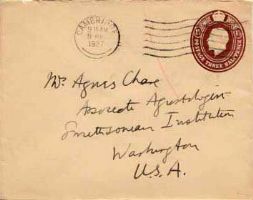 CAMBRIDGE
9 15 AM
1927
THREE HALFPENCE
Mr. Agnes Chase
Associate Agrostologist
Smithsonian Institution
Washington
U.S.A.